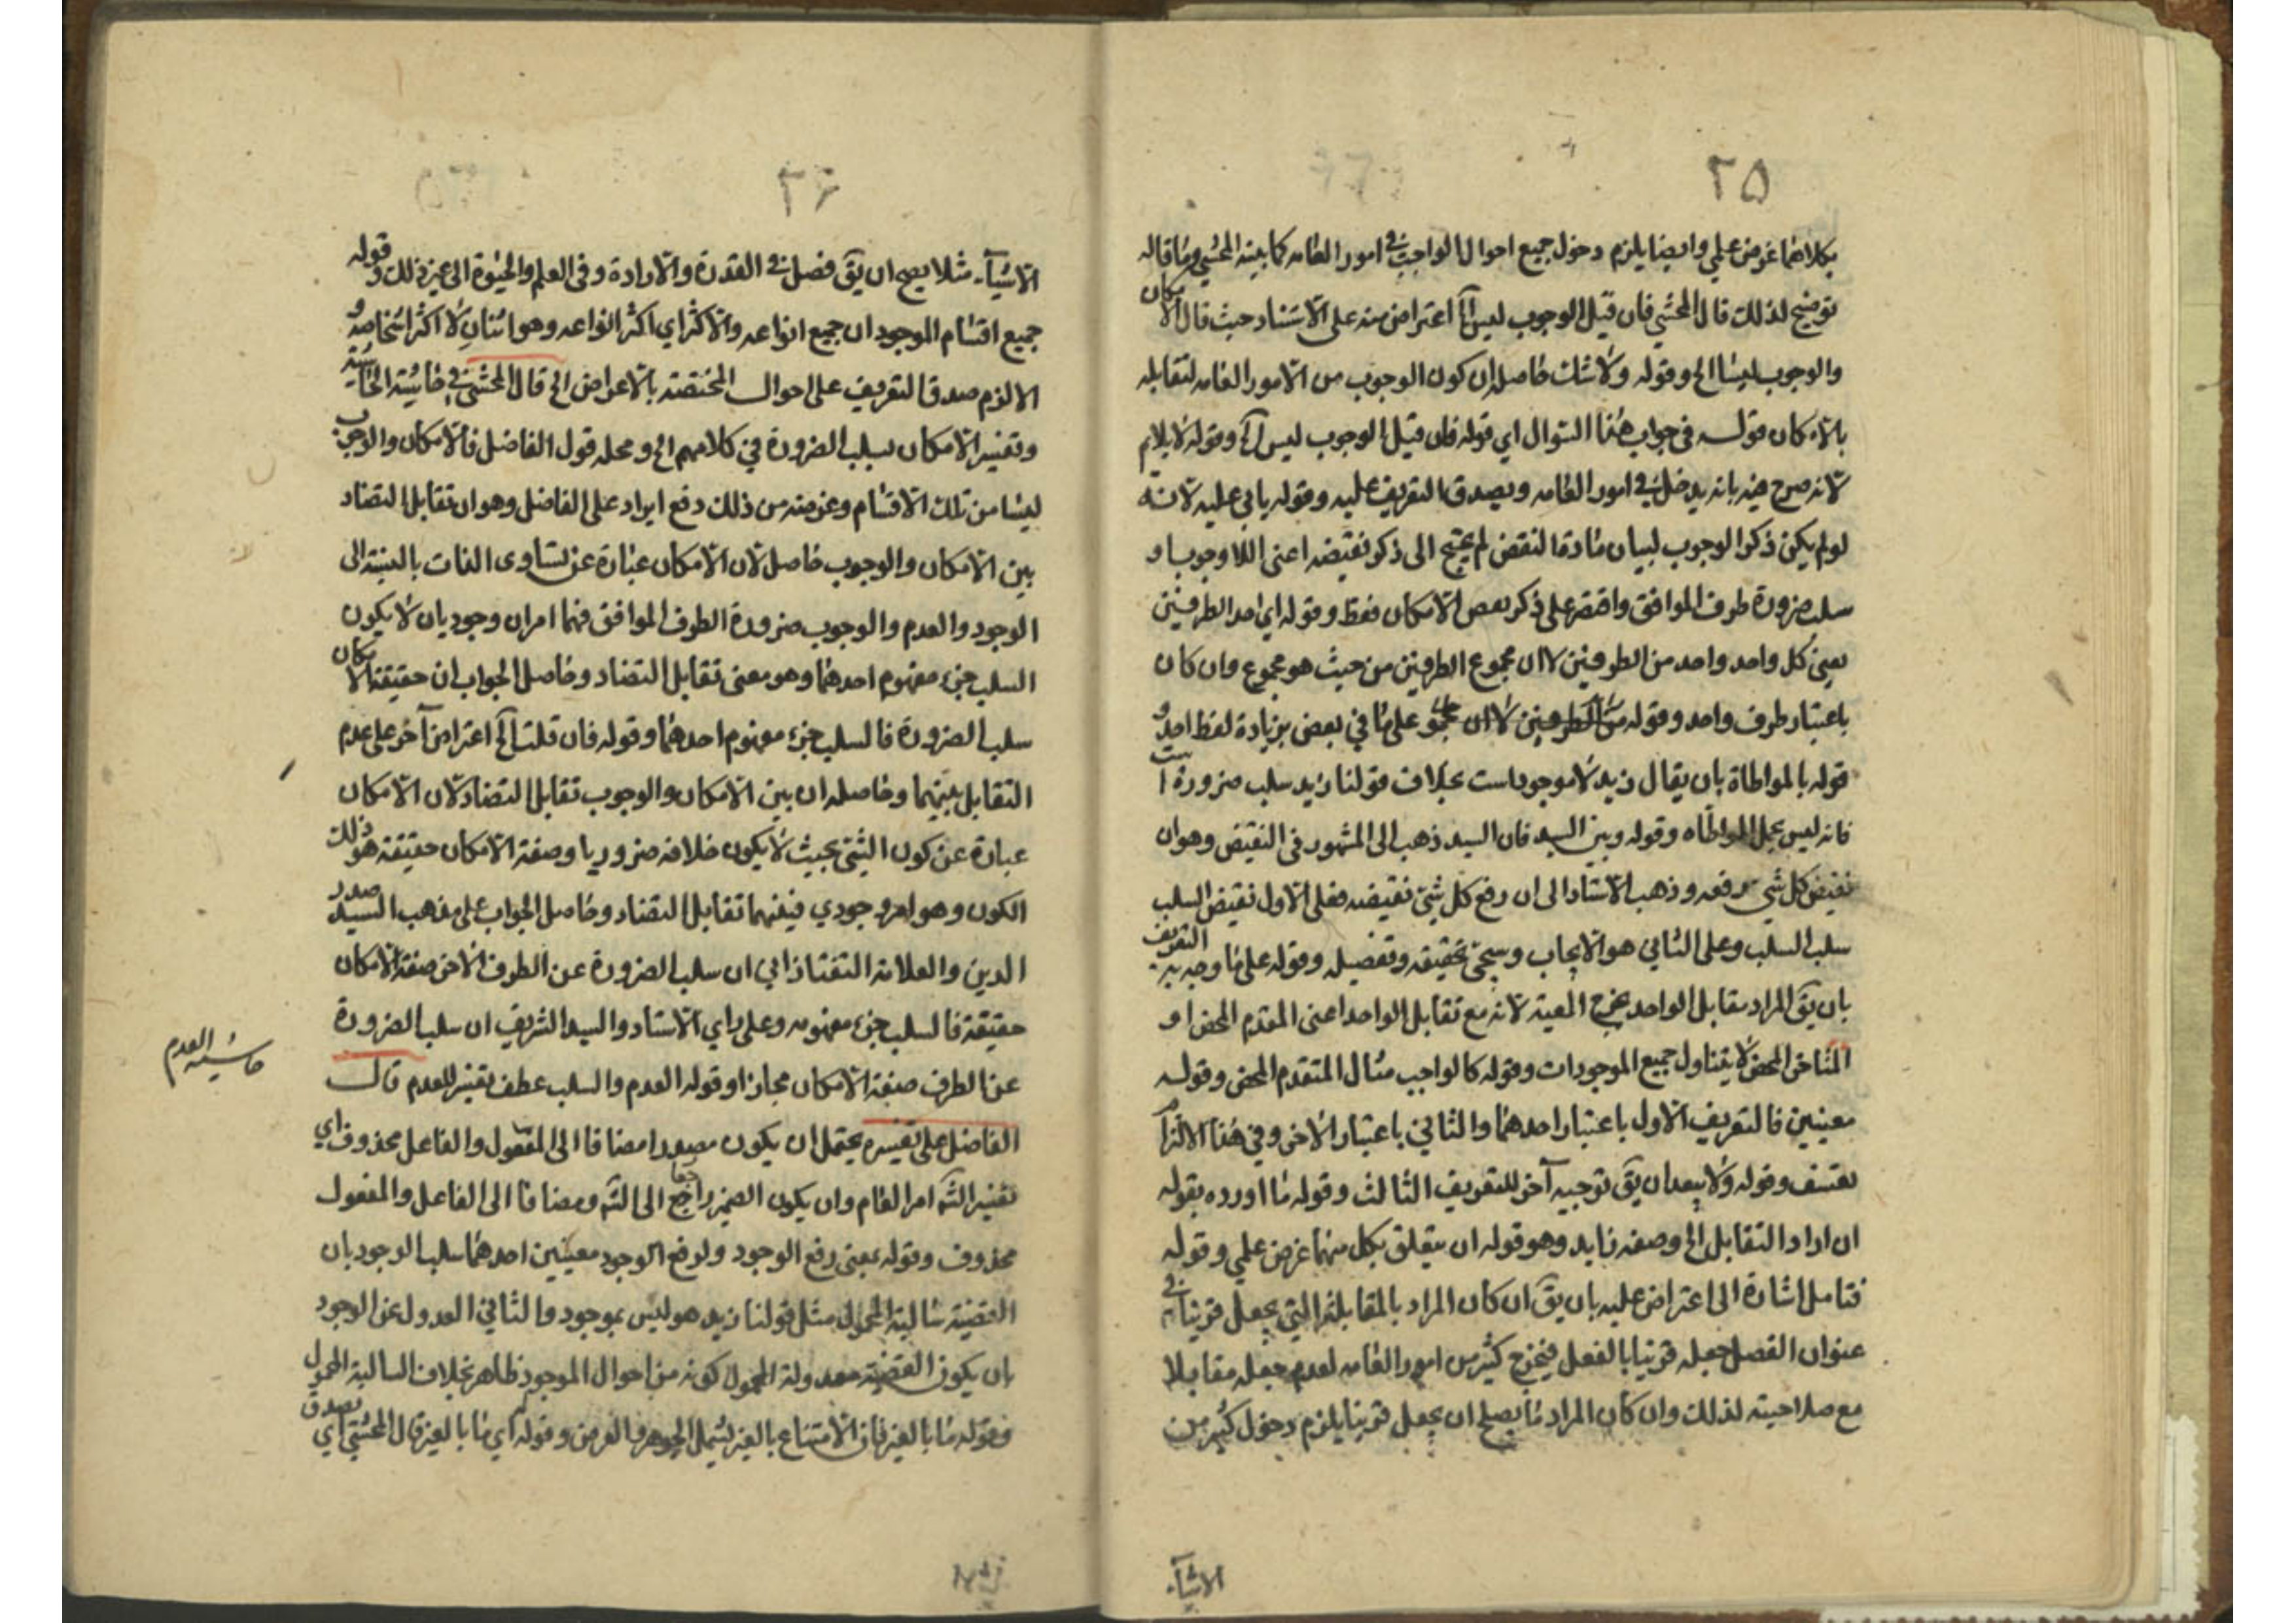 ٢٥
بكلاهما غرض علمي وايضا يلزم دخول جميع احوال الواجب في امور العامه كما بينه المحشي وما قاله
توضيح لذلك قال المحشي فان قيل الوجوب ليس آه اعتراض منه على الاستناد حيث قال الامكان
والوجوب ليسا الخ وقوله ولا شك حاصله ان كون الوجوب من الامور العامه لتقابله
بالامكان قوله في جواب هذا السؤال اي قوله فان قيل الوجوب ليس آه وقوله لا يلايم
لانه صرح فيه بانه يدخل في امور العامه ويصدق التعريف عليه وقوله يابى عليه لانه
لو لم يكن ذكر الوجوب لبيان مادة النقض لم يحتج الى ذكر نقيضه اعنى اللاوجوب او
سلب ضرورة طرف الموافق واقتصر على ذكر بعض الامكان فقط وقوله اي احد الطرفين
يعني كل واحد واحد من الطرفين لا ان مجموع الطرفين من حيث هو مجموع وان كان
باعتبار طرف واحد وقوله من الطرفين لا ان على ما في بعض بزيادة لفظ احد و
قوله بالمواطاة بان يقال زيد لا موجود است بخلاف قولنا زيد سلب ضرورة است
فانه ليس بحمل المواطاه وقوله وبين السيد فان السيد ذهب الى المشهور في النقيض وهو ان
نقيض كل شي رفعه وذهب الاستاد الى ان رفع كل شيئ نقيضه فعلى الاول نقيض السلب
سلب السلب وعلى الثاني هو الايجاب وسيجئ تحقيقه وتفصيله وقوله على ما وجه به التعريف
بان يق المراد مقابل الواحد يخرج المعية لانه مع تقابل الواحد اعنى المقدم المحض او
المتاخر المحض لا يتناول جميع الموجودات وقوله كالواجب مثال المتقدم المحض وقوله
معنيين فالتعريف الاول باعتبار احدهما والثاني باعتبار الاخر وفي هذا الالتزام
تعسف وقوله ولا يبعد ان يق توجيه آخر للتعريف الثالث وقوله ما اورده بقوله
ان اراد التقابل الخ وصفه زايد وهو قوله ان يتعلق بكل منهما غرض علمي وقوله
فتامل اشارة الى اعتراض عليه بان يق ان كان المراد بالمقابلة التي يجعل قرينا في
عنوان الفصل جعله قرينا بالفعل فيخرج كثير من امور العامه لعدم جعله مقابلا
مع صلاحيته لذلك وان كان المراد ما يصلح ان يجعل قرينا يلزم دخول كثير من
الاشياء
٢٦
الاشياء مثلا يصح ان يق فصل في القدرة والارادة وفي العلم والحيوة الى غير ذلك وقوله
جميع اقسام الموجود ان جميع انواعه والاكثر اي اكثر انواعه وهو اثنان لا اكثر اشخاصه و
الا لزم صدق التعريف على احوال المختصة بالاعراض الخ قال المحشي في حاشية الحاشية
وتفسير الامكان بسلب الضرورة في كلامهم الخ ومحله قول الفاضل فالامكان والوجوب
ليسا من تلك الاقسام وغرضه من ذلك دفع ايراد على الفاضل وهو ان تقابل التضاد
بين الامكان والوجوب حاصل لان الامكان عبارة عن تساوى الذات بالنسبة الى
الوجود والعدم والوجوب ضرورة الطرف الموافق فهما امران وجوديان لا يكون
السلب جزء مفهوم احدهما وهو معنى تقابل التضاد وحاصل الجواب ان حقيقة الامكان
سلب الضرورة فالسلب جزء مفهوم احدهما وقوله فان قلت آه اعتراض آخر على عدم
التقابل بينهما وحاصله ان بين الامكان والوجوب تقابل التضاد لان الامكان
عبارة عن كون الشئ بحيث لا يكون خلافه ضروريا وصفة الامكان حقيقة هو ذلك
الكون وهو امر وجودي فبينهما تقابل التضاد وحاصل الجواب على مذهب السيد صدر
الدين والعلامة التفتازاني ان سلب الضرورة عن الطرف الاخر صفة الامكان
حقيقة فالسلب جزء مفهومه وعلى راي الاستاد والسيد الشريف ان سلب الضرورة
عن الطرف صفة الامكان مجازا وقوله العدم والسلب عطف تفسير للعدم قال
حاشية العدم
الفاضل على تفسيره يحتمل ان يكون مصدرا مضافا الى المفعول والفاعل محذوف اي
تفسير الشه امر العام وان يكون الضمير راجعا الى الشه ومضافا الى الفاعل والمفعول
محذوف وقوله بمعنى رفع الوجود ولرفع الوجود معنيين احدهما سلب الوجود بان
القضية سالبة المحمول مثل قولنا زيد هو ليس بموجود والثاني العدول عن الوجود
بان يكون القضية معدولة المحمول كونه من احوال الموجود ظاهر بخلاف السالبة المحمول
وقوله ما بالغير فان الامتناع بالغير يشمل الجوهر والعرض وقوله اي ما بالغير قال المحشي اي يصدق